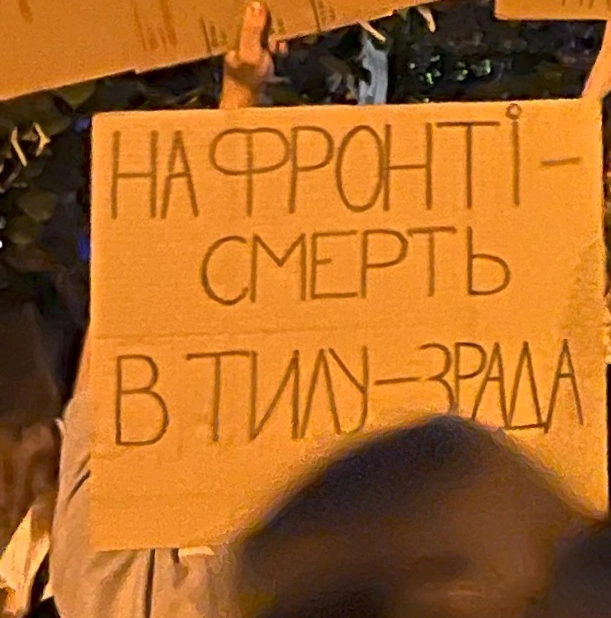 НА ФРОНТІ –
СМЕРТЬ
В ТИЛУ – ЗРАДА